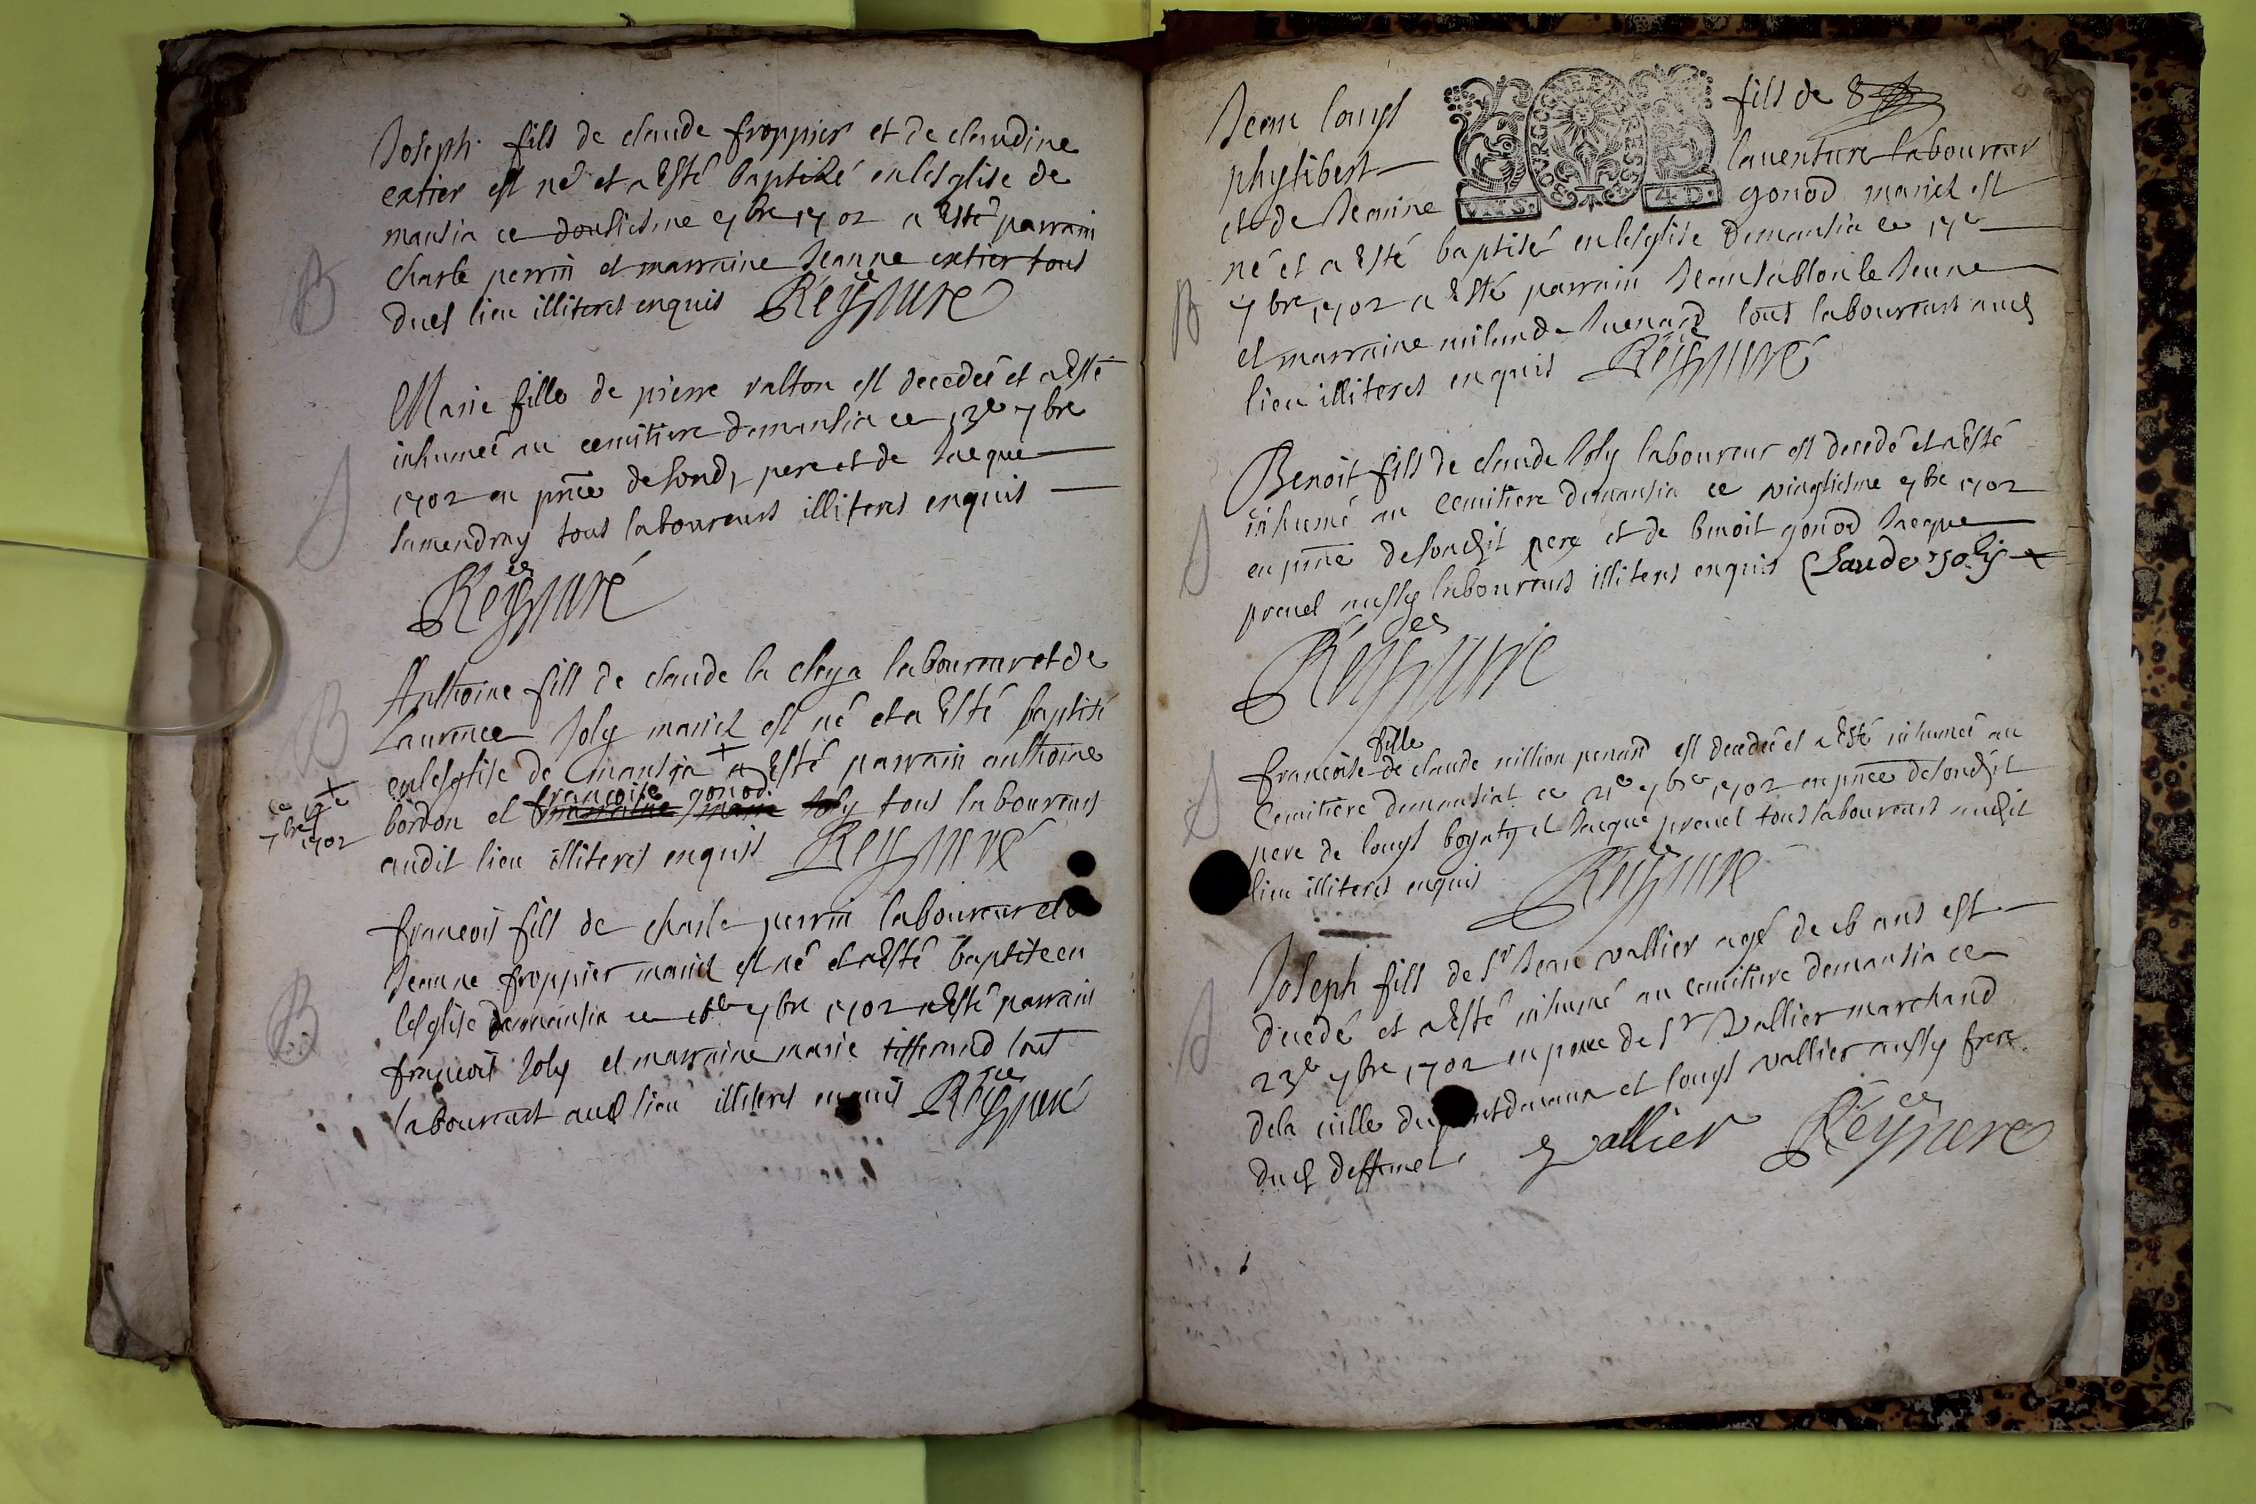 Joseph fils de claude froppier et de claudine
extier est né et a Esté baptisé en lesglise de
mansia ce dousiesme 7bre 1702 a Esté parrain
charle perrin et marraine Jeanne extier tous
dud lieu illiteres enquis Reyssure
B
Marie fille de pierre valton est decedeé et a Esté
inhumeé au cemitiere demansia ce 13e 7bre
1702 en pnce desond pere et de Jacque
Jamendroy tous laboureurs illiteres enquis
S
Reyssure
Anthoine fils de claude la claya laboureur et de
Laurence Joly mariez est né et a Esté baptisé
en lesglise de mansia + a Esté parrain anthoine
+ ce 14e
7bre 1702
francoise gonod
bordon et tous laboureurs
audit lieu illiteres enquis Reyssure
B
francois fils de charle perrin laboureur et de
Jeanne froppier mariez est né et a Esté baptisé en
lesglise demansia ce 16e 7bre 1702 a Esté parrain
francois Joly et marraine marie tifferand tout
laboureurs aud lieu illiteres enquis Reyssure
B
Jean louys fils de
phylibert laventure laboureur
BOURGOGNE BRESSE
VN S. 4 D.
et de Jeanne gonod mariez est
né et a Esté baptisé en lesglise demansia ce 17e
7bre 1702 a Esté parrain Jean sablon le Jeune
et marraine tous laboureurs aud
lieu illiteres enquis Reyssure
B
Benoit fils de claude Joly laboureur est decedé et a Esté
inhumé au cemitiere demansia ce vingtiesme 7bre 1702
en pnce desondit pere et de benoit gonod Jacque
preuel aussy laboureurs illiteres enquis Claude Joly
S
Reyssure
fille
francoise de claude million penard est decedeé et a Esté inhumeé au
Cemitiere demansiat ce 21e 7bre 1702 en pnce desondit
pere de louys boyaty et Jacque preuel tous laboureurs audit
lieu illiteres enquis Reyssure
S
Joseph fils de Sr Jean vallier agé de ans est
decedé et a Esté inhumé au cemitiere demansia ce
23e 7bre 1702 en pnce de Sr Vallier marchand
dela ville du pontdevaux et louys vallier aussy frere
dud deffunct vallier Reyssure
S